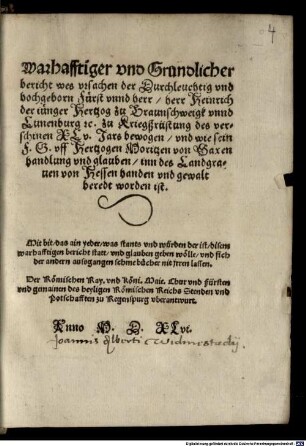 4
Warhafftiger vnd Grundlicher
bericht wes vrsachen der Durchleuchtig vnd
hochgeborn Fürst vnnd herr / herr Heinrich
der jünger Hertzog zů Braunschweigk vnnd
Lünenburg ꝛc. zů Kriegßrüstung des ver-
schinen XLv. Jars bewogen / vnd wie sein
F. G. vff Hertzogen Moritzen von Saxen
handlung vnd glauben / inn des Landgra-
uen von Hessen handen vnd gewalt
beredt worden ist.
Mit bit / das ain yeder / was stants vnd würden der ist / disem
warhafftigen bericht statt / vnd glauben geben wölle / vnd sich
der andern außgangen schmebücher nit jrren lassen.
Der Römischen Kay. vnd Köni. Maie. Chur vnd fürsten
vnd gemainen des heyligen Römischen Reichs Stenden vnd
Potschafften zů Regenspurg vberantwurt.
Anno M. D. XLvi.
Joannis Alberti Widmestadij.